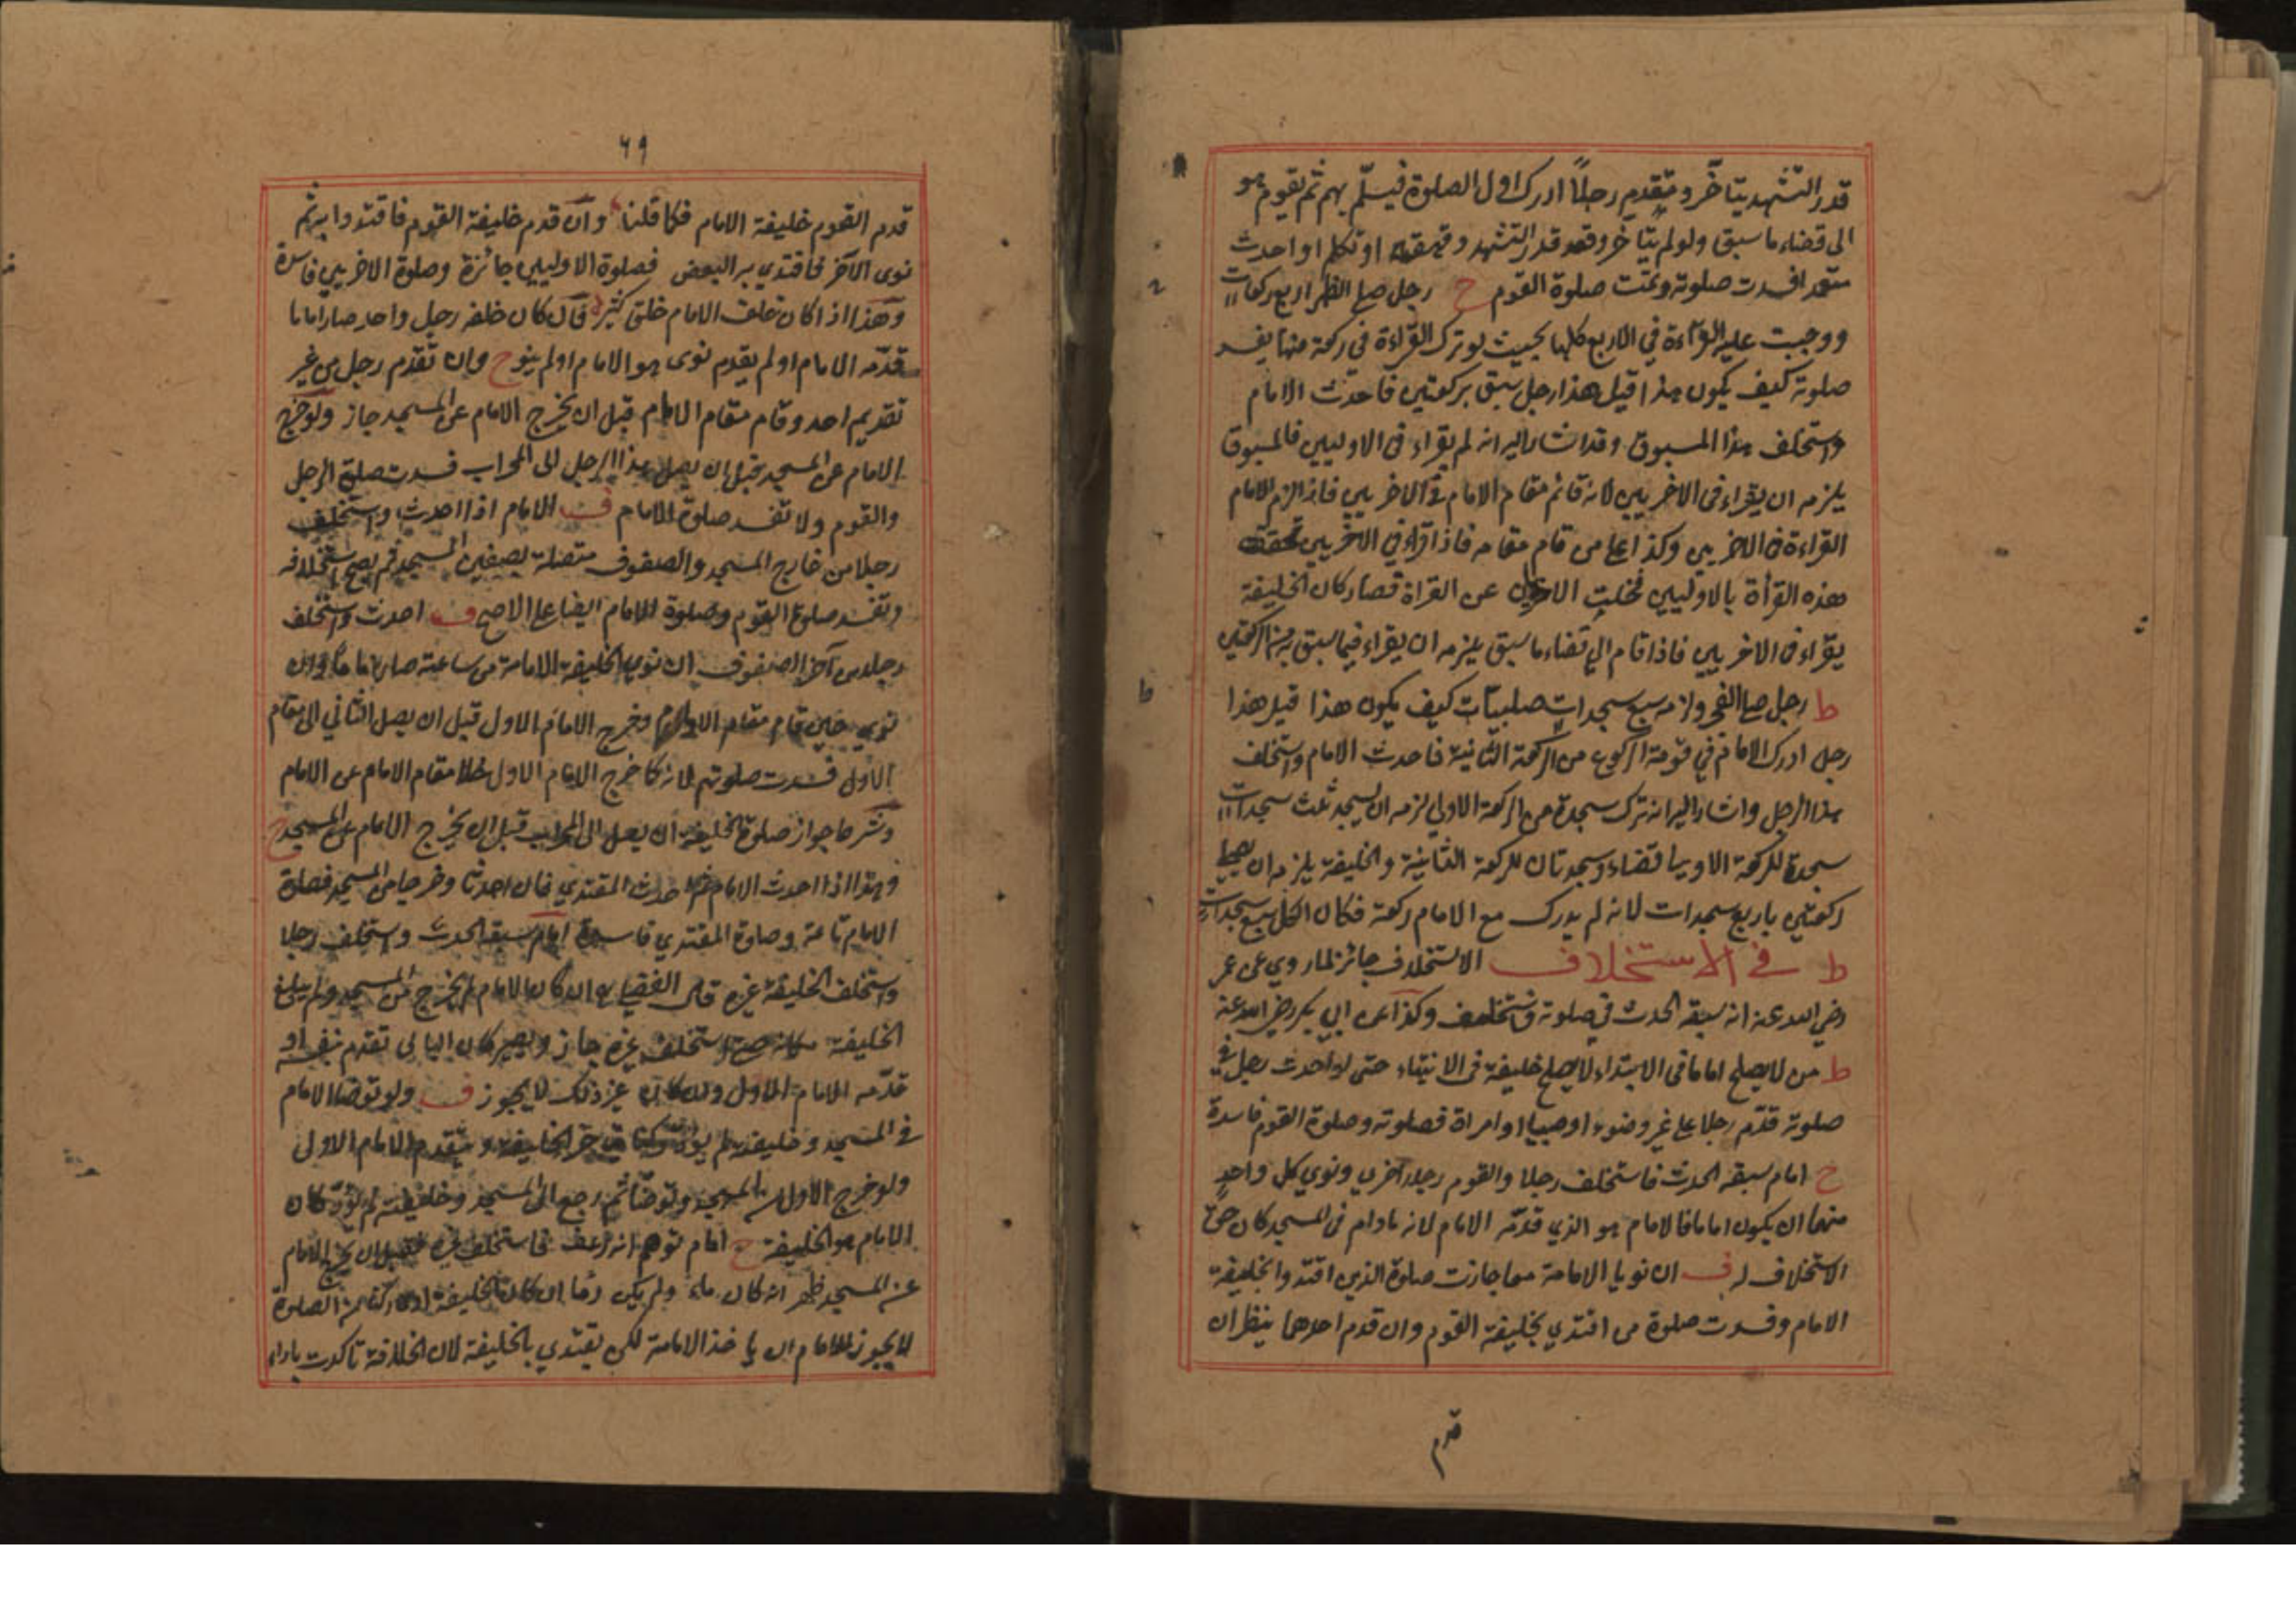 قدر التشهد يتأخر ويقدم رجلاً ادرك اول الصلوة فيسلّم بهم ثم يقوم هو
الى قضاء ما سبق ولو لم يتأخر وقعد قدر التشهد وقهقه او تكلم او احدث
متعمدا فسدت صلوته وتمت صلوة القوم ح رجل صلى الظهر اربع ركعات
ووجبت عليه القراءة في الاربع كلها بحيث لو ترك القراءة في ركعة منها يفسد
صلوته كيف يكون هذا قيل هذا رجل سبق بركعتين فاحدث الامام
واستخلف هذا المسبوق وقد اشار اليه انه لم يقراء في الاوليين فالمسبوق
يلزمه ان يقراء في الاخريين لانه قائم مقام الامام في الاخريين فاذا لزم الامام
القراءة في الاخريين وكذا على من قام مقامه فاذا قراء في الاخريين تحققت
هذه القرأة بالاوليين فخلت الاخريان عن القراة فصار كان الخليفة
يقراء في الاخريين فاذا قام الى قضاء ما سبق يلزمه ان يقراء فيما سبق به من الركعتين
ط رجل صلى الفجر ولزمه سبع سجدات صلبيات كيف يكون هذا قيل هذا
رجل ادرك الامام في قومة الركوع من الركعة الثانية فاحدث الامام واستخلف
هذا الرجل واشار اليه انه ترك سجدة من الركعة الاولى لزمه ان يسجد ثلث سجدات
سجدة للركعة الاولى قضاء وسجدتان للركعة الثانية والخليفة يلزمه ان يصلي
ركعتين باربع سجدات لانه لم يدرك مع الامام ركعة فكان الكل سبع سجدات
ط في الاستخلاف الاستخلاف جائز لما روي عن عمر
رضي الله عنه انه سبقه الحدث في صلوته فاستخلف وكذا عن ابي بكر رضي الله عنه
ط من لا يصلح اماما في الابتداء لا يصلح خليفة في الانتهاء حتى لو احدث رجل في
صلوته قدّم رجلا على غير وضوء او صبيا او امراة فصلوته وصلوة القوم فاسدة
ح امام سبقه الحدث فاستخلف رجلا والقوم رجلا آخر ونوى كل واحد
منهما ان يكون اماما فالامام هو الذي قدّمه الامام لانه ما دام في المسجد كان حق
الاستخلاف له ف ان نويا الامامة معا جازت صلوة الذين اقتدوا بخليفة
الامام وفسدت صلوة من اقتدى بخليفة القوم وان قدم احدهما ينظر ان
قدم
٦٩
قدم القوم خليفة الامام فكما قلنا وان قدم خليفة القوم فاقتدوا به ثم
نوى الآخر فاقتدى به البعض فصلوة الاوليين جائزة وصلوة الاخريين فاسدة
وهذا اذا كان خلف الامام خلق كثير فان كان خلفه رجل واحد صار اماما
قدّمه الامام او لم يقدم نوى هو الامام او لم ينو ح وان تقدم رجل من غير
تقديم احد وقام مقام الامام قبل ان يخرج الامام عن المسجد جاز ولو خرج
الامام عن المسجد قبل ان يصل هذا الرجل الى المحراب فسدت صلوة الرجل
والقوم ولا تفسد صلوة الامام ف الامام اذا احدث واستخلف
رجلا من خارج المسجد والصفوف متصلة بصفوف المسجد لم يصح استخلافه
وتفسد صلوة القوم وصلوة الامام ايضا على الاصح ف احدث واستخلف
رجلا من آخر الصفوف ان نوى الخليفة الامامة من ساعته صار اماما وان
نوى حين قام مقام الاول وخرج الامام الاول قبل ان يصل الثاني الى مقام
الاول فسدت صلوتهم لانه كما خرج الامام الاول خلا مقام الامام عن الامام
وشرط جواز صلوة الخليفة ان يصل الى المحراب قبل ان يخرج الامام عن المسجد ح
وهذا اذا احدث الامام ثم احدث المقتدي فان احدثا وخرجا من المسجد فصلوة
الامام تامة وصلوة المقتدي فاسدة امام سبقه الحدث واستخلف رجلا
واستخلف الخليفة غيره قال الفقيه ان كان الامام لم يخرج من المسجد ولم يبلغ
الخليفة مكانه حتى استخلف غيره جاز ويصير كان الثاني تقدم بنفسه او
قدّمه الامام الاول وان كان غير ذلك لا يجوز ف ولو توضا الامام
في المسجد وخليفته لم يؤد ركنا يتأخر الخليفة ويتقدم الامام الاول
ولو خرج الاول من المسجد وتوضّأ ثم رجع الى المسجد وخليفته لم يؤدّ كان
الامام هو الخليفة ح امام توهم انه رعف فاستخلف غيره فقبل ان يخرج الامام
عن المسجد ظهر انه كان ماء ولم يكن دما ان كان الخليفة ادى ركنا من الصلوة
لا يجوز للامام ان ياخذ الامامة لكن يقتدي بالخليفة لان الخلافة تاكدت باداء